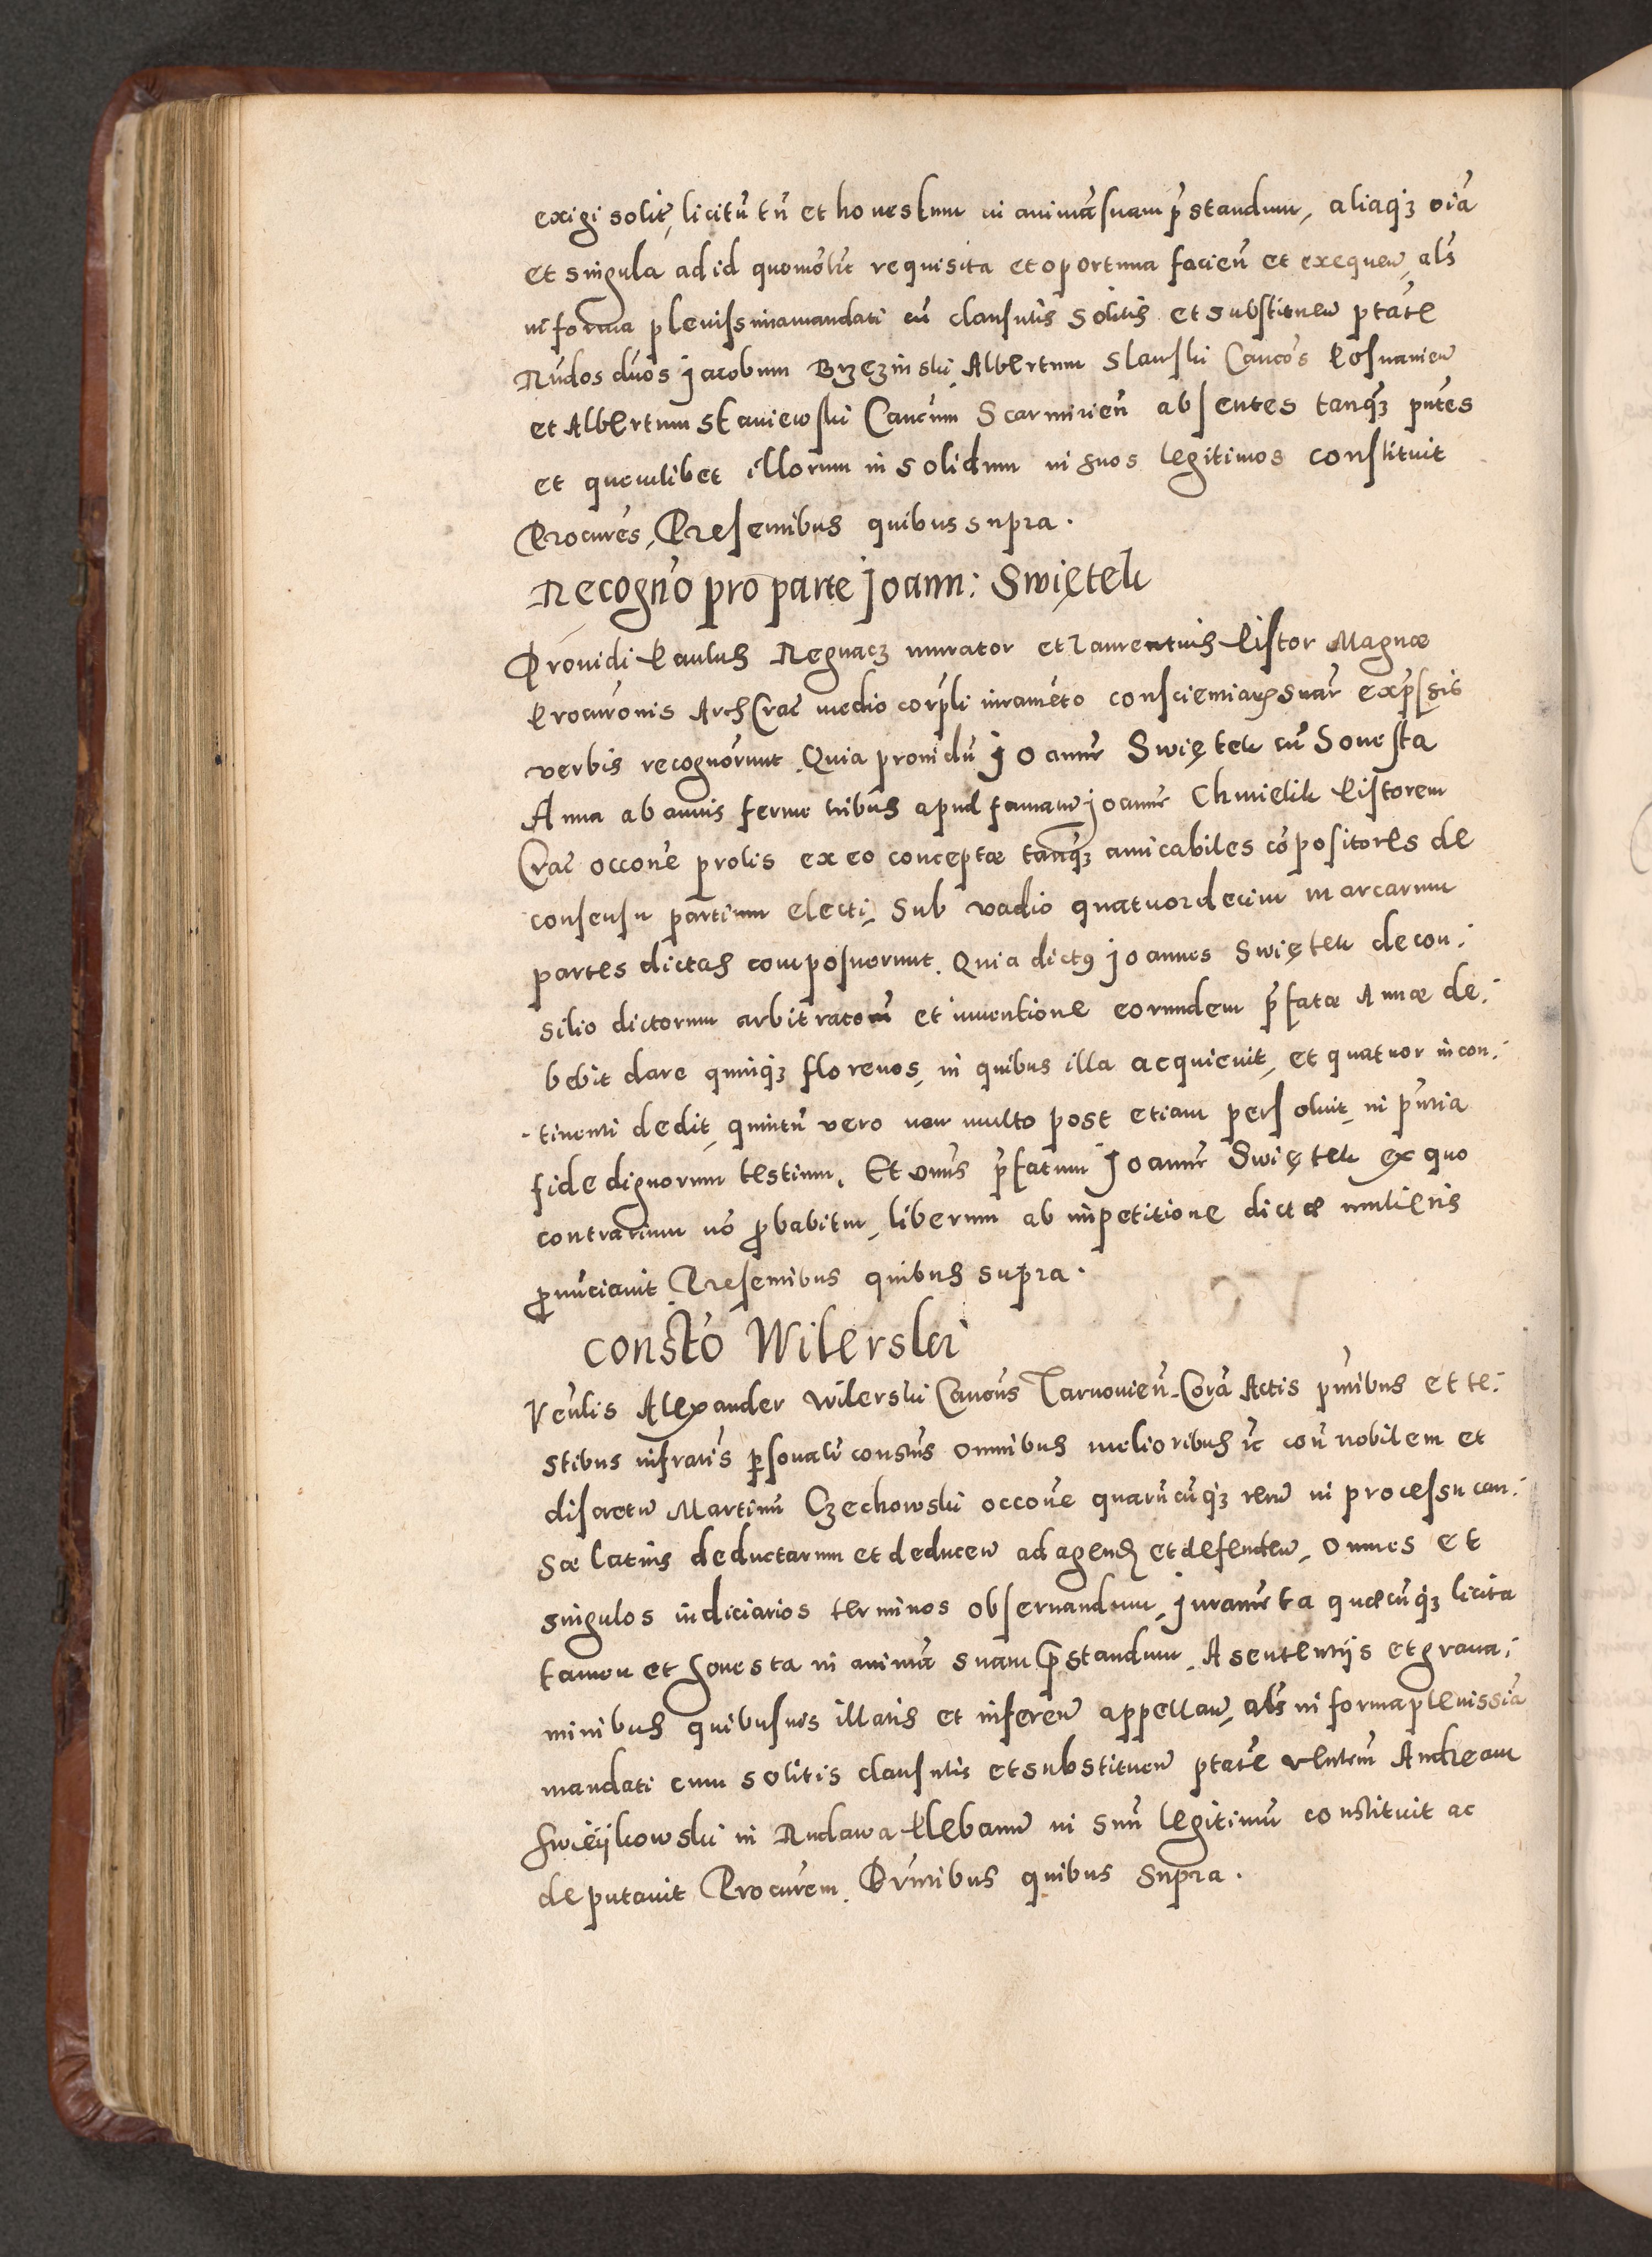 exigi solit̃, licitũ tñ et honestum in animã suam p̃standum, aliaqȝ oı̃a
et singula ad id quomõlĩt requisita et oportuna facieñ et exequeñ, als̃
in forma plenissima mandati cũ clausulis solitis et substitueñ ptãte
Rñdos dños Jacobum Brzezinski, Albertum Slawski Cancõs Posnanieñ
et Albertum Staniewski Cancũm Scarmirieñ absentes tanqȝ pñtes
et quemlibet illorum in solidum in suos legitimos constituit
Procurẽs, Presentibus quibus supra.
Recogñ̃o pro parte Joann: Swiętek
Providi Paulus Regnacz murator et Laurentius Pistor Magnæ
Procurõnis Arch Crac̃ medio corp̃li iuramẽto conscientiarꝫ suar̃ exp̃ssis
verbis recognorũnt. Quia providũ Joannẽ Swiętek cũ honesta
Anna ab annis ferme tribus apud famatũ Joannẽ Chmielik Pistorem
Crac̃ occonẽ prolis ex eo conceptæ tanqȝ amicabiles cõpositores de
consensu partium electi, sub vadio quatuordecim marcarum
partes dictas composuerunt. Quia dictꝰ Joannes Swiętek de con:
silio dictorum arbitratorũ et inventione eorundem p̃fatæ Annæ de:
bebit dare quinqȝ florenos, in quibus illa acquievit, et quatuor in con:
tinenti dedit, quintũ vero non multo post etiam persoluit, in pñtia
fide dignorum testium. Et dnus p̃fatum Joannẽ Swiętek ex quo
contrarium nõ ꝓbabitur, liberum ab impetitione dictæ mulieris
ꝓnũciavit Presentibus quibus supra.
Constõ Wilerski
Veñlis Alexander Wilerski Canoñs Tarnovieñ. Corã Actis pñtibus et te:
stibus infratis̃ ꝑsonalr̃ constus̃ omnibus melioribus ꝛc coñ nobilem et
discretũ Martinũ Czechowski occonẽ quarũcũqȝ rerũ in processu cau:
sæ latius deductarum et deduceñ ad agendꝫ et defendeñ, omnes et
singulos iudiciarios terminos observandum, juramẽta quæcũqȝ licita
tamen et honesta in animã suam p̃standum. A sententijs et grava:
minibus quibusuis illatis et infereñ appellañ, als̃ in forma plenissia
mandati cum solitis clausulis et substitueñ ptãte veñlem Andream
Swieÿkowski in Rudawa Plebanũ in suũ legitimũ constituit ac
deputavit Procurẽm. Pñtibus quibus supra.